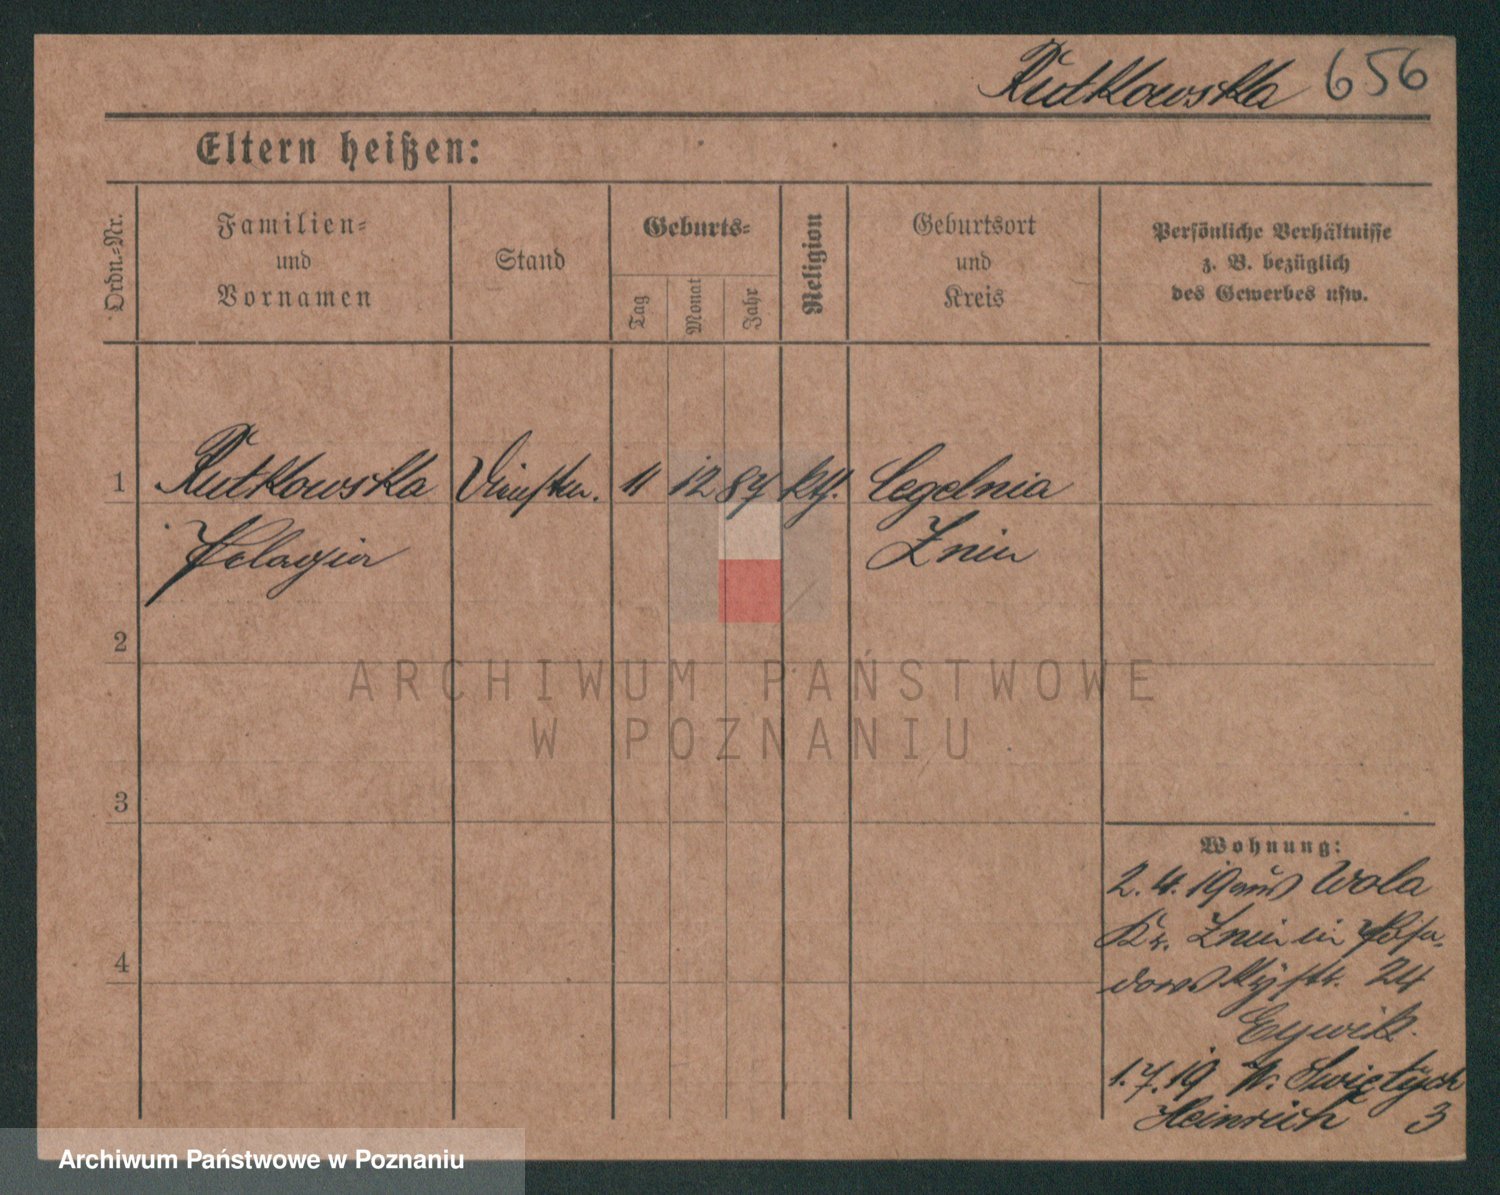 Rutkowska 656
Eltern heißen:
Ordn.-Nr.
Familien-
und
Vornamen
Stand
Geburts-
Tag
Monat
Jahr
Religion
Geburtsort
und
Kreis
Persönliche Verhältnisse
z. B. bezüglich
des Gewerbes usw.
1 Rutkowska 11 12 87 kth. Cegelnia
Pelagia Znin
2
ARCHIWUM PAŃSTWOWE
W POZNANIU
3
Wohnung:
2. 4. 19 aus Wola
Kr. Znin in Posa-
dowskystr. 24
4
1.7.19 W. Świętych
Heinrich 3
Archiwum Państwowe w Poznaniu